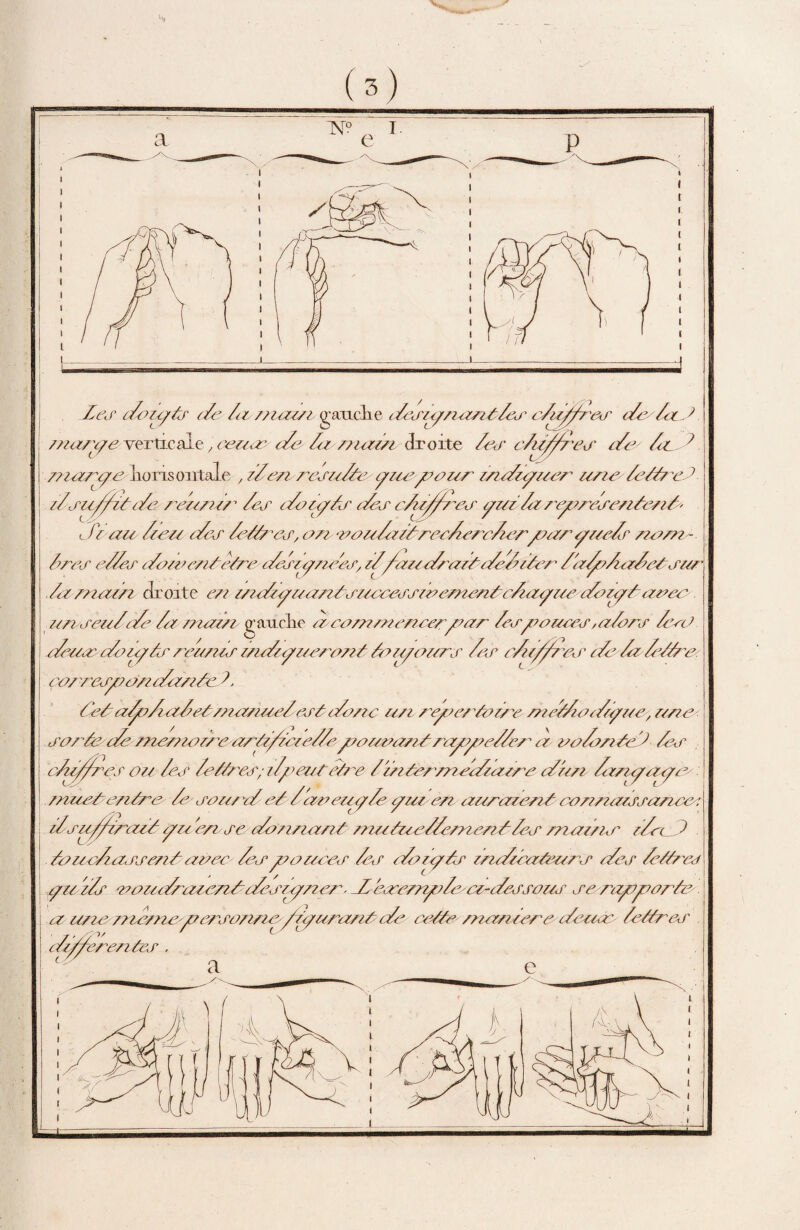 (3)
N.º I.
a e p
Les doigts de la main gauche désignant les chiffres de la
marge verticale, ceux de la main droite les chiffres de la
marge horisontale, il en résulte que pour indiquer une lettre
il suffit de réunir les doigts des chiffres qui la représentent.
Si au lieu des lettres, on voulait rechercher par quels nom-
bres elles doivent être désignées, il faudrait débiter l'alphabet sur
la main droite en indiquant successivement chaque doigt avec
un seul de la main gauche à commencer par les pouces, alors les
deux doigts réunis indiqueront toujours les chiffres de la lettre
correspondante.
Cet alphabet manuel est donc un répertoire méthodique, une
sorte de mémoire artificielle pouvant rappeller à volonté les
chiffres ou les lettres; il peut être l'intermédiaire d'un langage
muet entre le sourd et l'aveugle qui en auraient connaissance:
il suffirait qu'en se donnant mutuellement les mains ils
touchassent avec les pouces les doigts indicateurs des lettres
qu'ils voudraient désigner. L'éxemple ci-dessous se rapporte
a une même personne figurant de cette maniere deux lettres
différentes.
a e